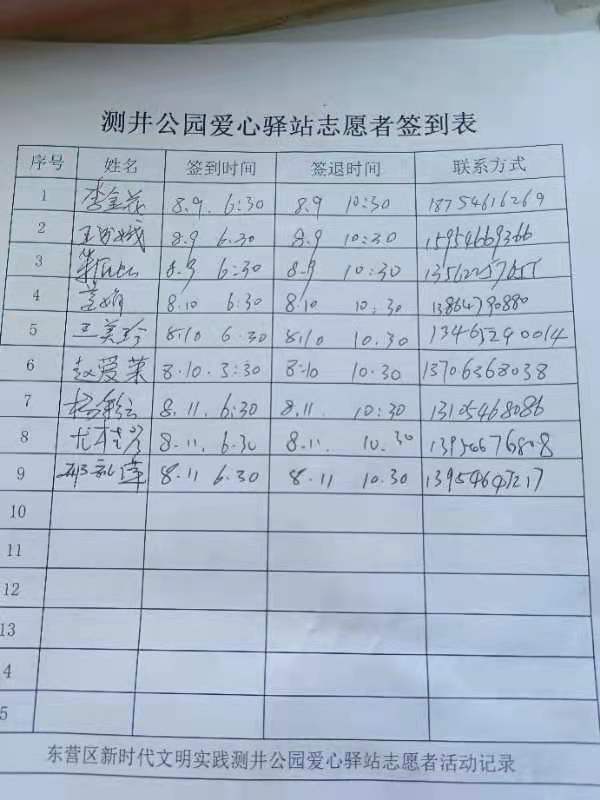 测井公园爱心驿站志愿者签到表
序号 姓名 签到时间 签退时间 联系方式
1 李金花 8.9. 6:30 8.9 10:30 18754616269
2 8.9 6.30 8.9 10:30 15954669366
3 8.9 6:30 8.9 10:30
4 8.10 6:30 8.10 10.:30 13864790880
5 王美珍 8.10 6.30 8.10 10.30 13465290014
6 赵爱菜 8.10.3:30 8:10 10.30 13706368038
7 8.11. 6:30 8.11. 10:30 13105468086
8 8.11. 6.30 8.11. 10.30 13954676808
9 8.11 6.30 8.11 10.30 13954647217
10
11
12
13
4
5
东营区新时代文明实践测井公园爱心驿站志愿者活动记录